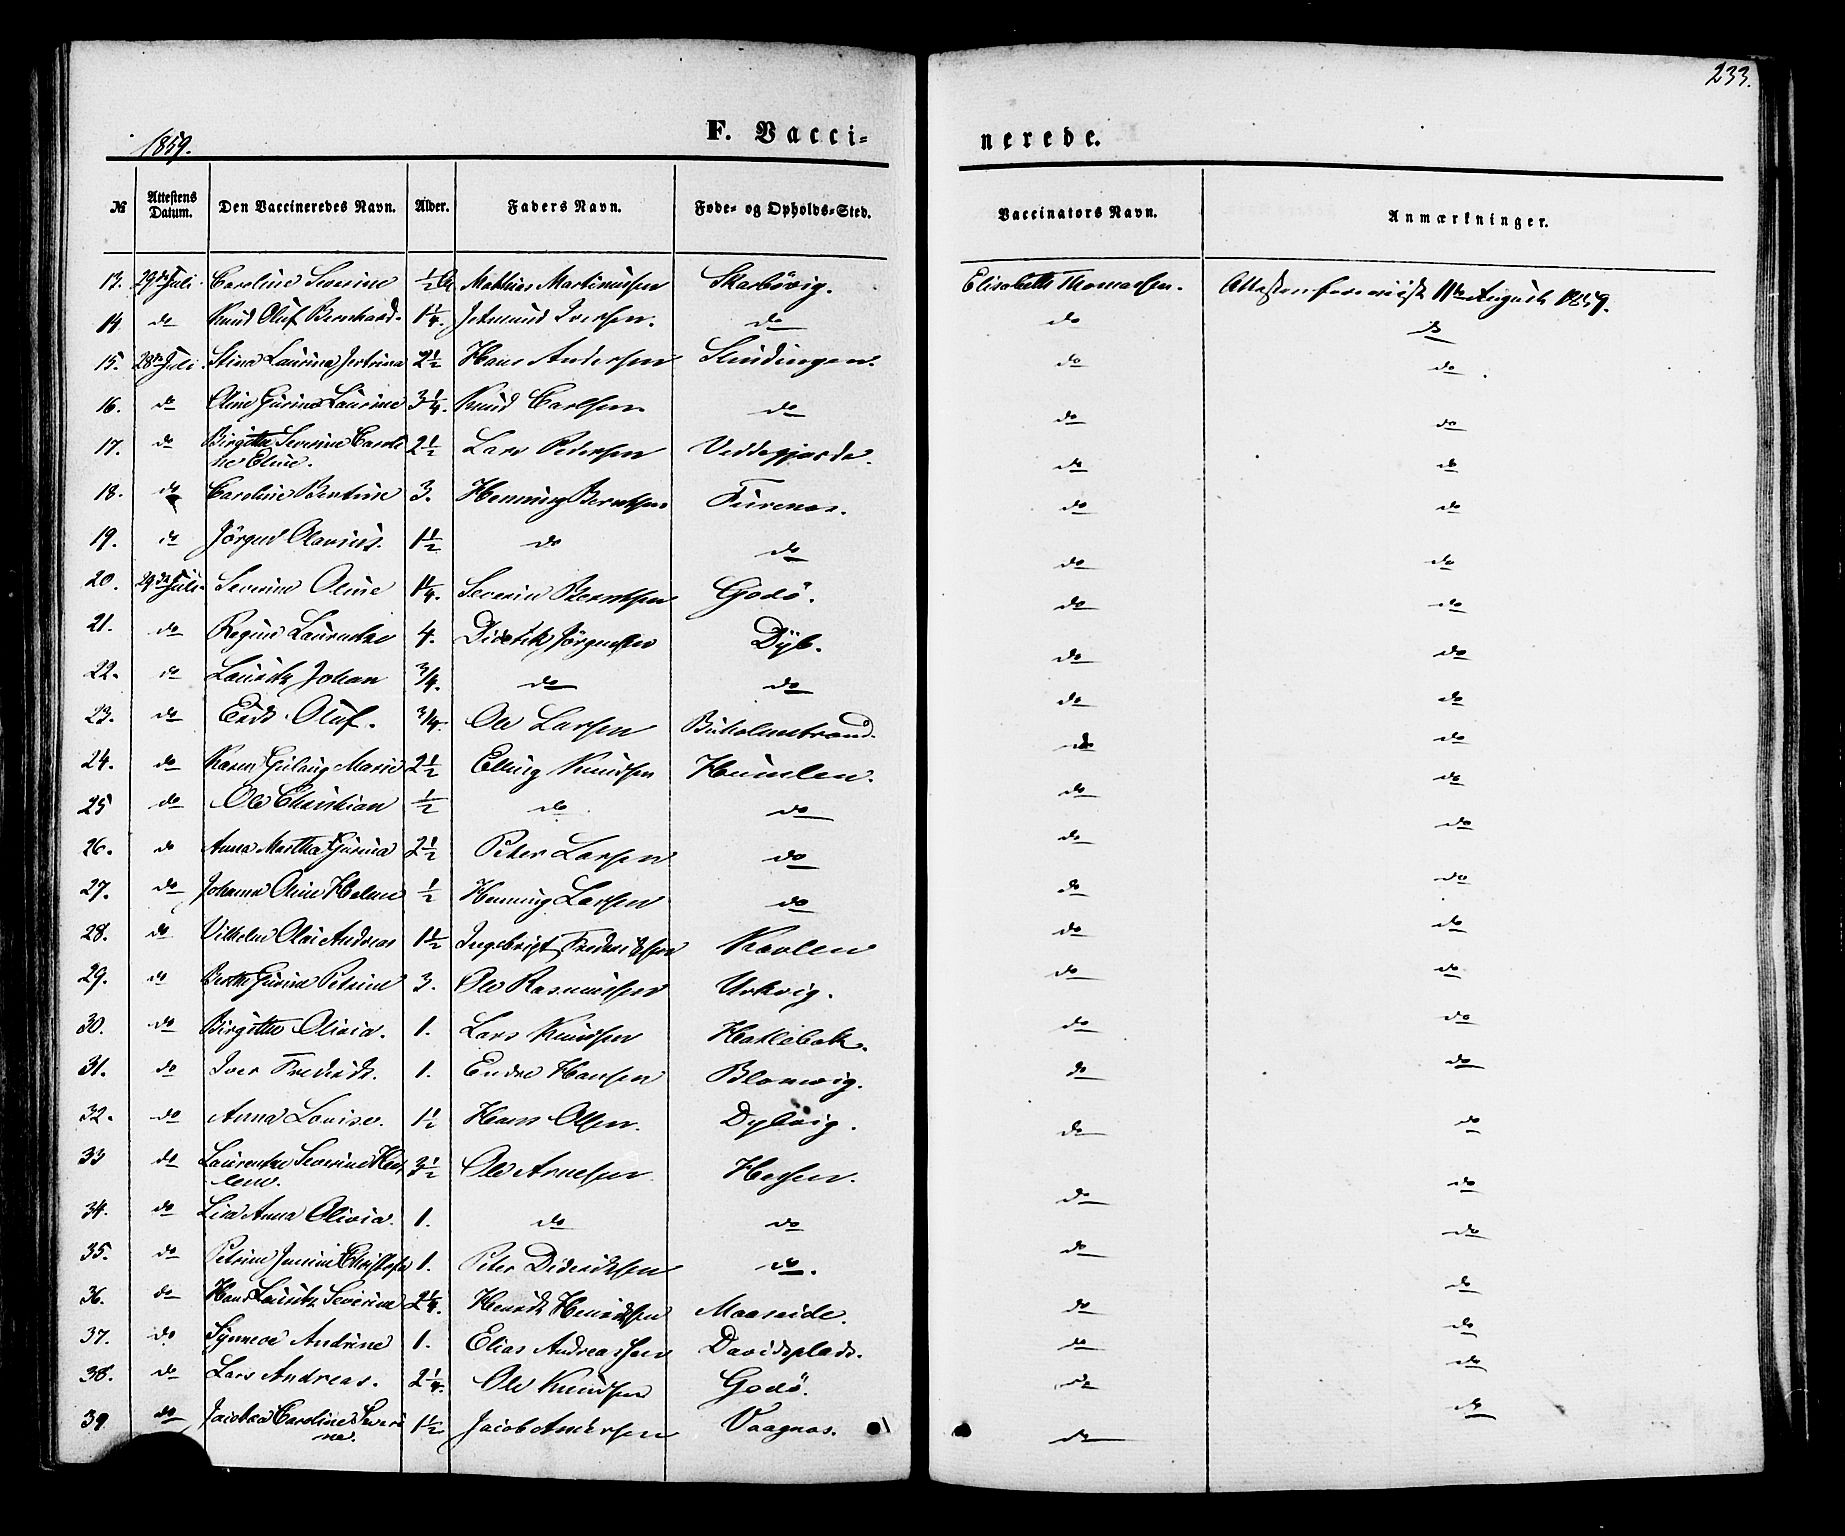 233.
1859.
F. Vacci=
nerede.
№ Attestens Datum. Den Vaccineredes Navn. Alder. Faders Navn. Føde- og Opholds-Sted. Vaccinators Navn. Anmærkninger.
13. 29de Juli Caroline Severine ½ Mathias Martinussen Skarbövig. Elisabeth Thomassen. Attesten foreviist 11te August 1859.
14 do Knud Oluf Bernhard. 1¼. Jetmund Iversen. do do do
15. 28de Juli. Stina Laurina Jertrina 2½ Hans Andersen Slindingen. do do
16. do Oline Gurine Laurine 3¼. Knud Carlsen do do do
17. do Birgitta Severine Caroli
ne Eline. 2½ Lars Pedersen Veddegjærde. do do
18. do Caroline Bertine 3. Henning Berntsen Furenes. do do
19. do Jörgen Olavius. 1½ do do do do
20. 29de Juli. Severine Oline 1¼. Severin Berntsen Godö. do do
21. do Regine Laurentze 4. Diderik Jörgensen Dÿb. do do
22. do Lauritz Johan ¾. do do do do
23. do Erik Oluf. ¾. Ole Larsen Buholmstrand. do do
24. do Karen Gulaug Marie 2½ Elling Knudsen Humlen. do do
25 do Ole Christian ½ do do do do
26. do Anna Martha Gurina 2½ Peter Larsen do do do
27. do Johanne Oline Helene ½ Henning Larsen do do do
28. do Vilhelm Olai Andreas 1½ Ingebrigt Frederiksen Kavlen do do
29. do Berthe Gurine Petrine 3. Ole Rasmussen Urkvig. do do
30. do Birgitta Olivia. 1. Lars Knudsen Haklebak. do do
31. do Iver Frederik. 1. Endre Hansen Blomvig. do do
32. do Anna Louise. 1½ Hans Olsen. Dybvig. do do
33 do Laurentze Severine Hen
lene. 3½ Ole Arnesen. Hessen. do do
34. do Lina Anna Olivia. 1. do do do do
35. do Petrine 1. Peter Dideriksen do. do do
36. do Hans Lauritz Severine 2¼. Henrik Henriksen Maaseide. do do
37. do Synneve Andrine 1. Elias Andreassen Davidsplads. do do
38. do Lars Andreas. 2¼. Ole Knudsen Godö. do do
39 do Jacobea Caroline Severi
ne. 1½ Jacob Andersen Vaagnæs. do do